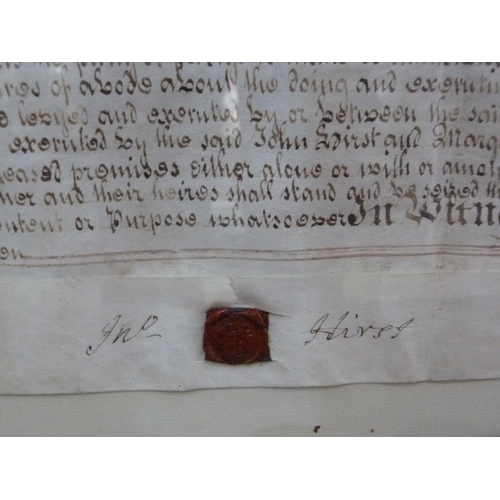 ures of abode about the doing and executi
levyed and executed by or between the said
executed by the said John Hirst and Marg
leased premises either alone or with or amo
ner and their heires shall stand and be seized th
entent or Purpose whatsoever In Witn
Jno Hirst